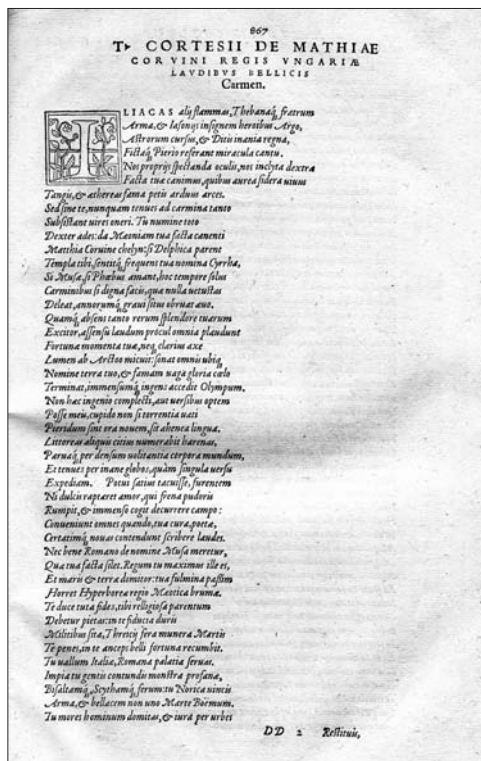 867
T. CORTESII DE MATHIAE
CORVINI REGIS VNGARIÆ
LAVDIBVS BELLICIS
Carmen.
ILIACAS alij flammas, Thebanaq́; fratrum
Arma, & Iasonijs insignem heroibus Argo,
Astrorum cursus, & Ditis inania regna,
Fictaq́; Pierio referant miracula cantu.
Nos proprijs spectanda oculis, nos inclyta dextra
Facta tuæ canimus, quibus aurea sidera uiuus
Tangis, & æthereas fama petis arduus arces.
Sed sine te, nunquam tenues ad carmina tanto
Subsistant uires oneri. Tu numine toto
Dexter ades: da Mæoniam tua facta canenti
Matthia Coruine chelyn: si Delphica parent
Templa tibi, sentitq́; frequens tua nomina Cyrrha,
Si Musæ, si Phœbus amant, hoc tempore solus
Carminibus si digna facis, quæ nulla uetustas
Deleat, annorumq́; graui situs obruat æuo.
Quamq́; absens tanto rerum splendore tuarum
Excitor, assensu laudum procul omnia plaudunt
Fortunæ momenta tuæ, neq́; clarius axe
Lumen ab Arctoo micuit: sonat omnis ubiq́;
Nomine terra tuo, & famam uaga gloria cœlo
Terminat, immensumq́; ingens accedit Olympum.
Non hæc ingenio complecti, aut uersibus optem
Posse meis, cupido non si torrentia uati
Pieridum sint ora nouem, sit ahenea lingua.
Littoreas aliquis citius numerabit harenas,
Paruaq́; per densum uolitantia corpora mundum,
Et tenues per inane globos, quàm singula uersu
Expediam. Potui satius tacuisse, furentem
Ni dulcis raptaret amor, qui frena pudoris
Rumpit, & immenso cogit decurrere campo:
Conueniunt omnes quando, tua cura, poetæ,
Certatimq́; nouas contendunt scribere laudes.
Nec bene Romano de nomine Musa meretur,
Quæ tua facta silet. Regum tu maximus ille es,
Et maris & terræ domitor: tua fulmina passim
Horret Hyperboreæ regio Mæotica brumæ.
Te duce tuta fides, tibi relligiosa parentum
Debetur pietas: in te fiducia duris
Militibus sita, Threicij fera munera Martis
Te penes, in te anceps belli fortuna recumbit.
Tu uallum Italiæ, Romana palatia seruas.
Impia tu gentis contundis monstra profanæ,
Bisaltamq́;, Scythamq́; ferum: tu Norica uincis
Arma, & bellacem non uno Marte Boëmum.
Tu mores hominum domitas, & iura per urbes
DD 2 Restituis,